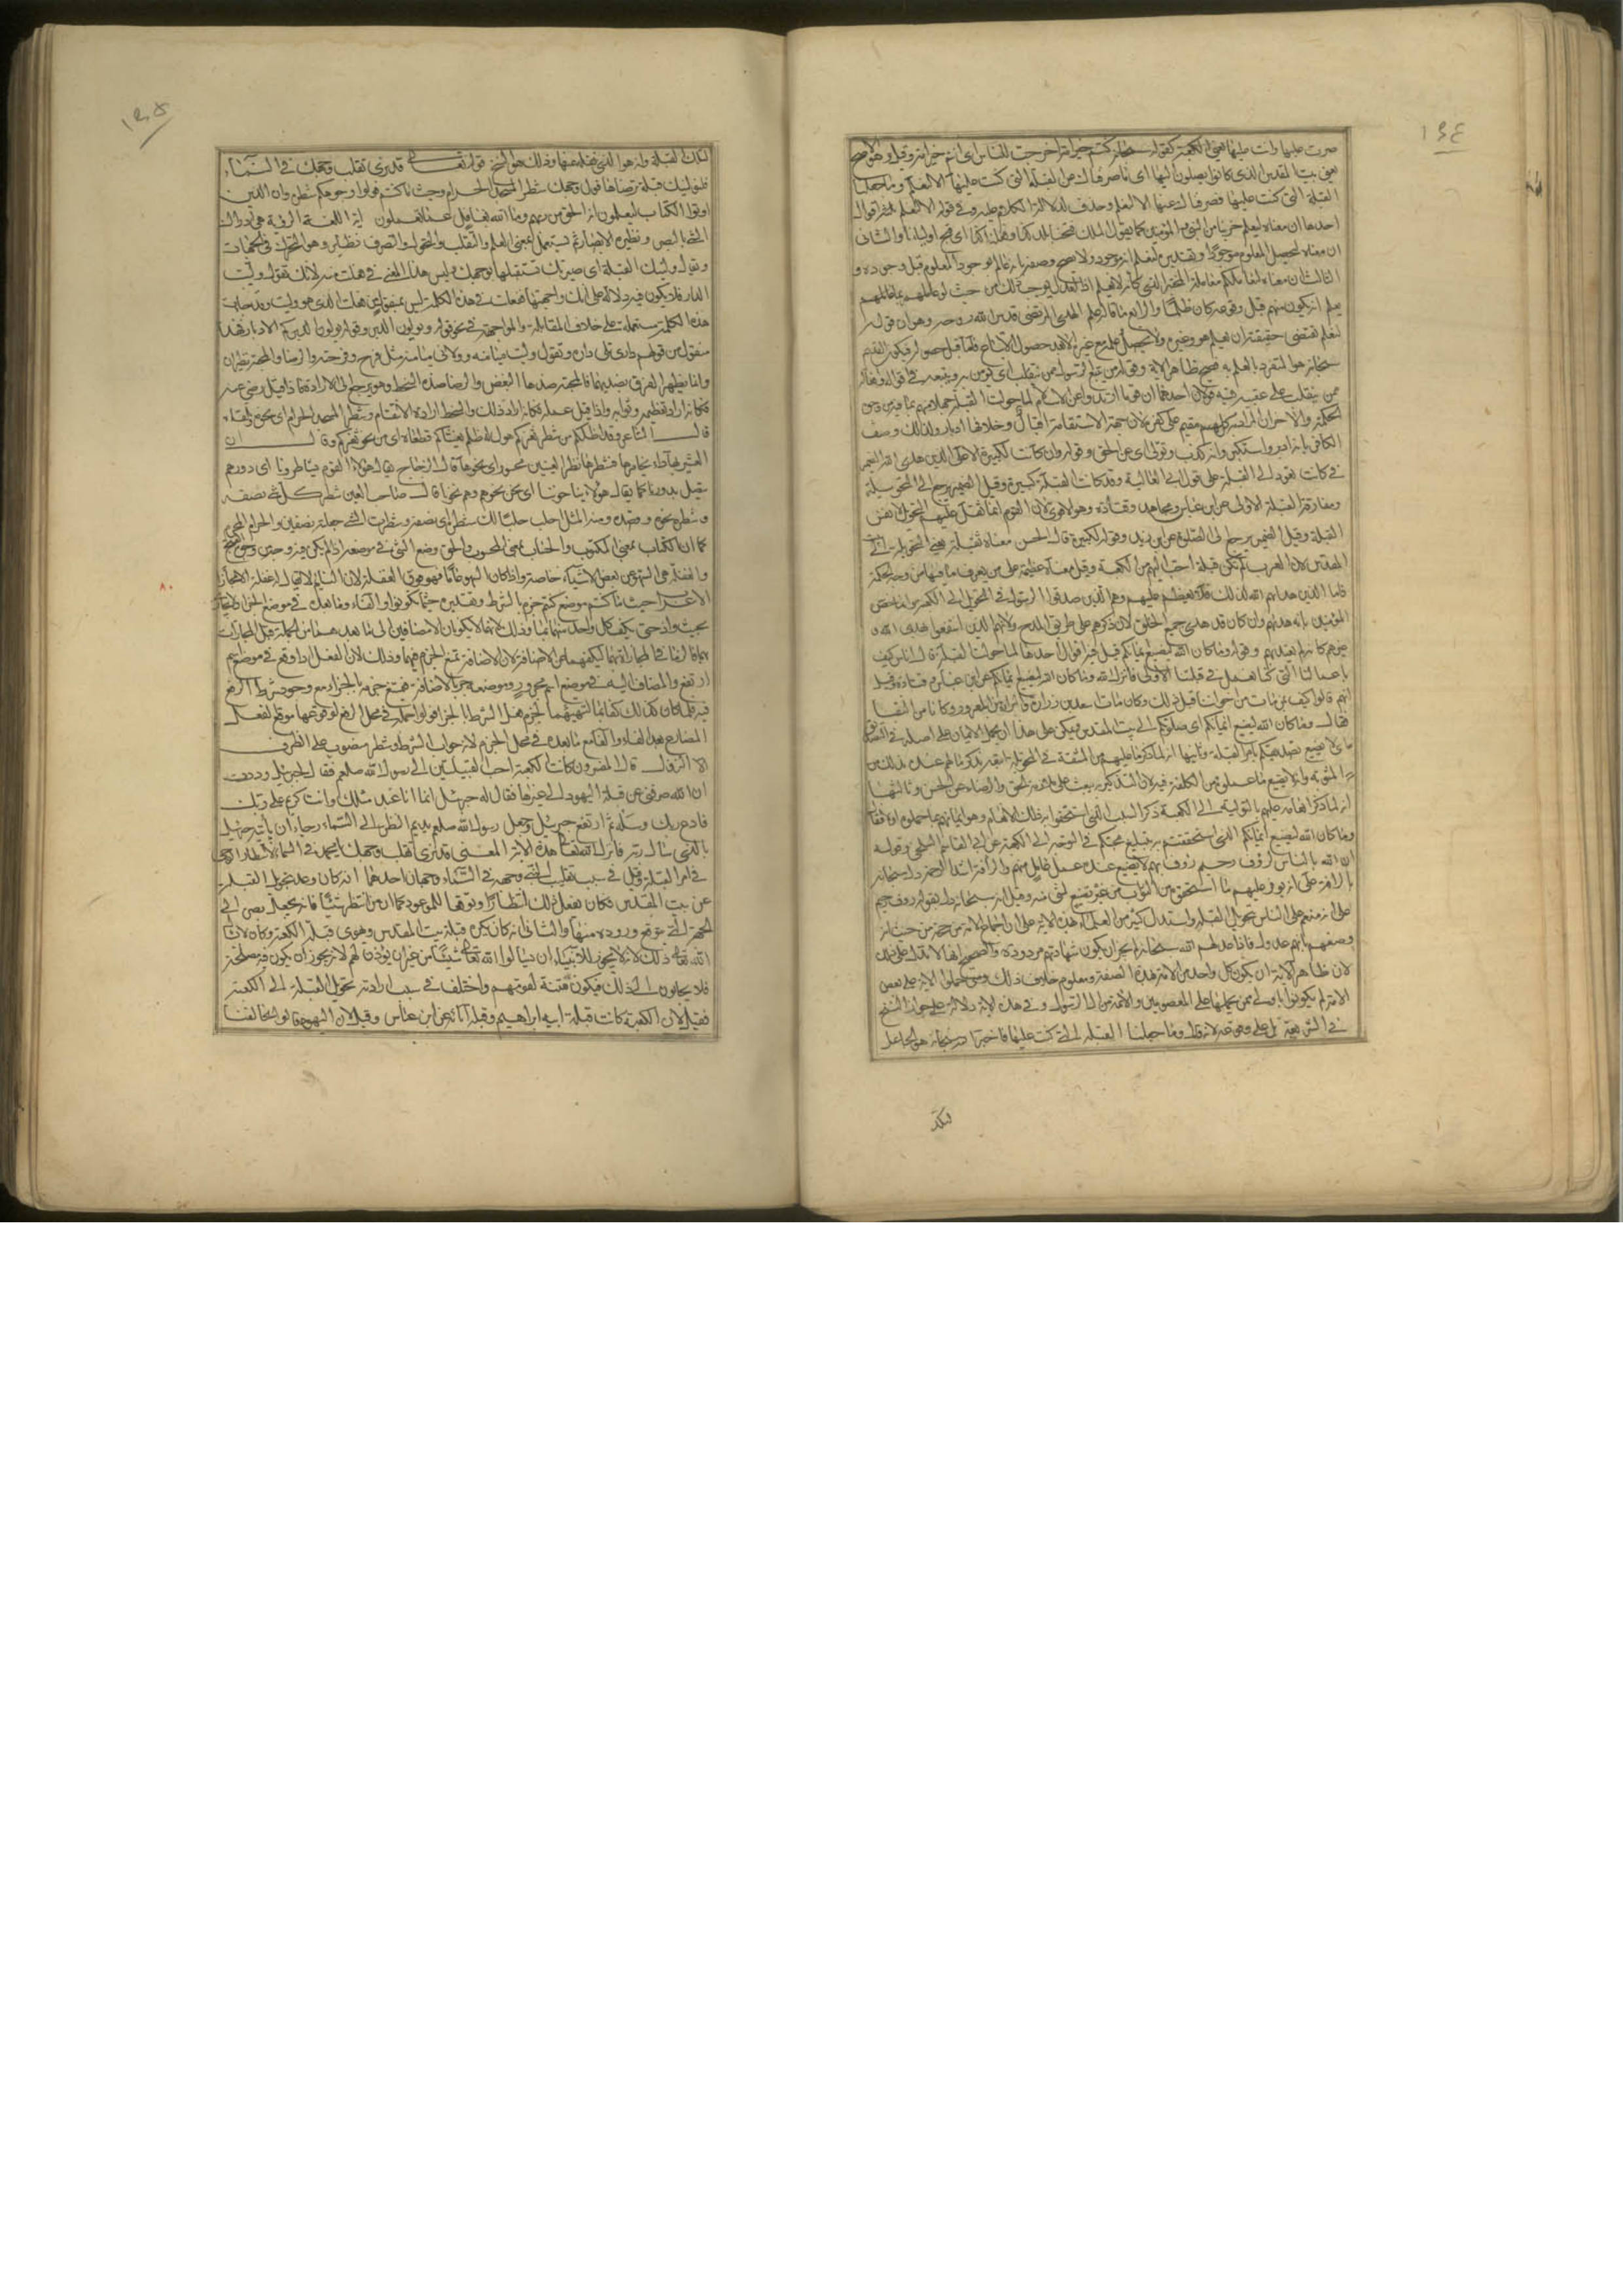 ١٣٤
صرت عليها وانت عليها يعني الكعبة كقوله سبحانه كنتم خير امة اخرجت للناس اى انتم خير امة وقيل وهو الاصح
يعنى بيت المقدس الذى كانوا يصلون اليها اى ما صرفناك عن القبلة التى كنت عليها الا لنعلم وما جعلنا
القبلة التى كنت عليها فصرفناك عنها الا لنعلم وحذف لدلالة الكلام عليه وفى قوله الا لنعلم اقوال
احدها ان معناه ليعلم حزبنا من النبى والمؤمنين كما يقول الملك فتحنا بلد كذا وفعلنا كذا اى فتح اولياؤنا والثانى
ان معناه ليحصل المعلوم موجودا وتقديره ليعلم انه موجود ولا يصح وصفه بانه عالم بوجود المعلوم قبل وجوده و
الثالث ان معناه لنعاملكم معاملة المختبر الذى كانه لا يعلم اذ العدل يوجب ذلك من حيث لو عاملهم بما يعلم انهم
يعلم انه يكون منهم قبل وقوعه كان ظلما والرابع ما قاله علم الهدى المرتضى قدس الله روحه وهو ان قوله
لنعلم تقتضى حقيقته ان يعلم هو وغيره ولا يحصل علمه مع علم غيره الا بعد حصول الاتباع فاما قبل حصوله فيكون القديم
سبحانه هو المتفرد بالعلم به فصح ظاهر الاية وقوله من يتبع الرسول ممن ينقلب اى يؤمن به ويتبعه فى اقواله وافعاله
ممن ينقلب على عقبيه فيه قولان احدهما ان قوما ارتدوا عن الاسلام لما حولت القبلة جهلا منهم بما فيه من وجوه
الحكمة والاخر ان المراد به كل مقيم على كفره لان جهة الاستقامة اقبال وخلافها ادبار ولذلك وصف
الكافر بانه ادبر واستكبر وانه كذب وتولى اى عن الحق وقوله وان كانت لكبيرة الا على الذين هدى الله الضمير
فى كانت يعود الى القبلة على قول ابى العالية وقد كانت القبلة كبيرة وقيل الضمير يرجع الى التحويلة
ومفارقة القبلة الاولى عن ابن عباس ومجاهد وقتادة وهو الاقوى لان القوم انما ثقل عليهم التحول لا نفس
القبلة وقيل الضمير يرجع الى الصلوة عن ابن زيد وقوله لكبيرة قال الحسن معناه ثقيلة يعنى التحويلة الى بيت
المقدس لان العرب لم تكن قبلة احب اليهم من الكعبة وقيل معناه عظيمة على من لا يعرف ما فيها من وجه الحكمة
فاما الذين هداهم الله لذلك فلا تعظم عليهم وهم الذين صدقوا الرسول فى التحول الى الكعبة وانما خص
المؤمنين بانه هداهم وان كان قد هدى جميع الخلق لانه ذكرهم على طريق المدح ولانهم الذين انتفعوا بهدى الله و
غيرهم كانه لم يعتد بهم وقوله وما كان الله ليضيع ايمانكم قيل فيه اقوال احدها لما حولت القبلة قال ناس كيف
باعمالنا التى كنا نعمل فى قبلتنا الاولى فانزل الله وما كان الله ليضيع ايمانكم عن ابن عباس وقتادة وقيل
انهم قالوا كيف بمن مات من اخواننا قبل ذلك وكان مات اسعد بن زرارة والبراء بن المعرور وكانا من النقباء
فقال وما كان الله ليضيع ايمانكم اى صلوتكم الى بيت المقدس ويمكن على هذا ان يحمل الايمان على اصله فى التصديق
اى لا يضيع تصديقكم بامر القبلة وثانيها انه لما ذكر ما عليهم من المشقة فى التحويلة اتبعه بذكر ما لهم عنده بذلك من
المثوبة وانه لا يضيع ما عملوه من الكلفة فيه لان التذكير به يبعث على ملازمة الحق والرضاء به عن الحسن وثالثها
انه لما ذكر انعامه عليهم بالتولية الى الكعبة ذكر السبب الذى استحقوا به ذلك الانعام وهو ايمانهم بما حملوه اولا فقال
وما كان الله ليضيع ايمانكم الذى استحققتم به تبليغ محبتكم فى التوجه الى الكعبة عن ابى القاسم البلخى وقوله
ان الله بالناس لرؤف رحيم رؤف بهم لا يضيع عنده عمل عامل منهم والرأفة اشد الرحمة دل سبحانه
بالرأفة على انه يوفر عليهم ما استحقوه من الثواب من غير تضييع لشئ منه وقيل انه سبحانه دل بقوله رؤف رحيم
على انه منعم على الناس بتحويل القبلة واستدل كثير من العلماء بهذه الاية على ان اجماع الامة حجة من حيث انه
وصفهم بانهم عدول فاذا عدلهم الله سبحانه لم يجز ان يكون شهادتهم مردودة والصحيح انها لا تدل على ذلك
لان ظاهر الاية ان يكون كل واحد من الامة بهذه الصفة ومعلوم خلاف ذلك ومتى حملوا الاية على بعض
الامة لم يكونوا باولى ممن يحملها على المعصومين والائمة من ال الرسول وفى هذه الاية دلالة على جواز النسخ
فى الشريعة بل على وقوعه لانه قال وما جعلنا القبلة التى كنت عليها فاخبر انه سبحانه هو الجاعل
لتلك
١٣٥
لتلك القبلة وانه هو الذى نقله عنها وذلك هو النسخ قوله تعالى قد نرى تقلب وجهك فى السماء
فلنولينك قبلة ترضاها فول وجهك شطر المسجد الحرام وحيث ما كنتم فولوا وجوهكم شطره وان الذين
اوتوا الكتاب ليعلمون انه الحق من ربهم وما الله بغافل عما يعملون اية اللغة الرؤية هى ادراك
الشئ بالبصر ونظيره الابصار ثم تستعمل بمعنى العلم والتقلب والتحول والتصرف نظائر وهو التحرك فى الجهات
ويقال وليتك القبلة اى صيرتك تستقبلها بوجهك وليس هذا المعنى فى فعلت منه لانك تقول وليت
الدار فلا يكون فيه دلالة على انك واجهتها ففعلت فى هذه الكلمة ليس بمنقول من فعلت الذى هو وليت وقد جاءت
هذه الكلمة مستعملة على خلاف المقابلة والمواجهة فى نحو قوله ويولون الدبر وقوله يولوكم الادبار فهذا
منقول من قولهم دارى تلى داره وتقول وليت ميامنه وولانى ميامنه مثل فرح وفرحته والرضا والمحبة نظيران
وانما يظهر الفرق بضديهما فالمحبة ضدها البغض والرضا ضده السخط وهو يرجع الى الارادة فاذا قيل رضى عنه
فكانه اراد تعظيمه وثوابه واذا قيل رضى عمله فكانه اراد ذلك والسخط ارادة الانتقام وشطر المسجد الحرام اى نحوه وتلقاءه
قال الشاعر وقد اظلكم من شطر ثغركم هول له ظلم يغشاكم قطعا اى من نحو ثغركم وقال
ان العسير بها داء مخامرها فشطرها نظر العينين محسور اى نحوها قال الزجاج يقال هؤلاء القوم مشاطرونا اى دورهم
يتصل بدورنا كما يقال هؤلاء يناحوننا اى نحن نحوهم وهم نحونا قال صاحب العين شطر كل شئ نصفه
وشطره نحوه وقصده ومنه المثل احلب حلبا لك شطره اى نصفه وشطرت الشئ جعلته نصفين والحرام المحرم
كما ان الكتاب بمعنى المكتوب والحساب بمعنى المحسوب والحق وضع الشئ فى موضعه اذا لم يكن فيه وجه من وجوه القبح
والغفلة هى السهو عن بعض الاشياء خاصة واذا كان السهو عاما فهو فوق الغفلة لان النائم لا يقال له غفل الا مجازا
الاعراب حيث ما كنتم موضع كنتم جزم بالشرط وتقديره حيثما تكونوا والفاء وما بعده فى موضع الجزاء ولا يجازى
بحيث واذ حتى يكف كل واحد منهما بما وذلك لانهما لا يكونان الا مضافين الى ما بعدهما من الجملة قبل المجازات
بهما فالزما فى المجازاة بهما ما ليكفهما عن الاضافة لان الاضافة تمنع الجزم فيهما وذلك لان الفعل اذا وقع فى موضع اسم
ارتفع والمضاف اليه فى موضع اسم مجرور وموضعه جر بالاضافة فيمتنع جزمه بالجزاء مع وجود شرط الرفع
فيه فلما كان كذلك كفتا بما لتهيئهما لجزم فعل الشرط بالجزاء فولوا جملة فى محل الرفع لوقوعها موقع الفعل
المضارع بعد الفاء والفاء مع ما بعده فى محل الجزم لانه جواب الشرط وشطره منصوب على الظرف
النزول قال المفسرون كانت الكعبة احب القبلتين الى رسول الله صلعم فقال لجبرئيل وددت
ان الله صرفنى عن قبلة اليهود الى غيرها فقال له جبرئيل انما انا عبد مثلك وانت كريم على ربك
فادع ربك وسله ثم ارتفع جبرئيل وجعل رسول الله صلعم يديم النظر الى السماء رجاء ان يأتيه جبرئيل
بالذى سأل ربه فانزل الله تعالى هذه الاية المعنى قد نرى تقلب وجهك يا محمد فى السماء لانتظار الوحى
فى امر القبلة وقيل فى سبب تقليب النبى وجهه فى السماء وجهان احدهما انه كان وعد بتحويل القبلة
عن بيت المقدس فكان يفعل ذلك انتظارا وتوقعا للموعود كما ان من انتظر شيئا فانه يجعل بصره الى
الجهة التى يتوقع وروده منها والثانى انه كان يكره قبلة بيت المقدس ويهوى قبلة الكعبة وكان لا يسأل
الله تعالى ذلك لانه لا يجوز للانبياء ان يسألوا الله تعالى شيئا من غير ان يؤذن لهم لانه يجوز ان لا يكون فيه مصلحة
فلا يجابون الى ذلك فيكون فتنة لقومهم واختلف فى سبب ارادته تحويل القبلة الى الكعبة
فقيل لان الكعبة كانت قبلة ابيه ابراهيم وقبلة آبائه عن ابن عباس وقيل لان اليهود قالوا يخالفنا